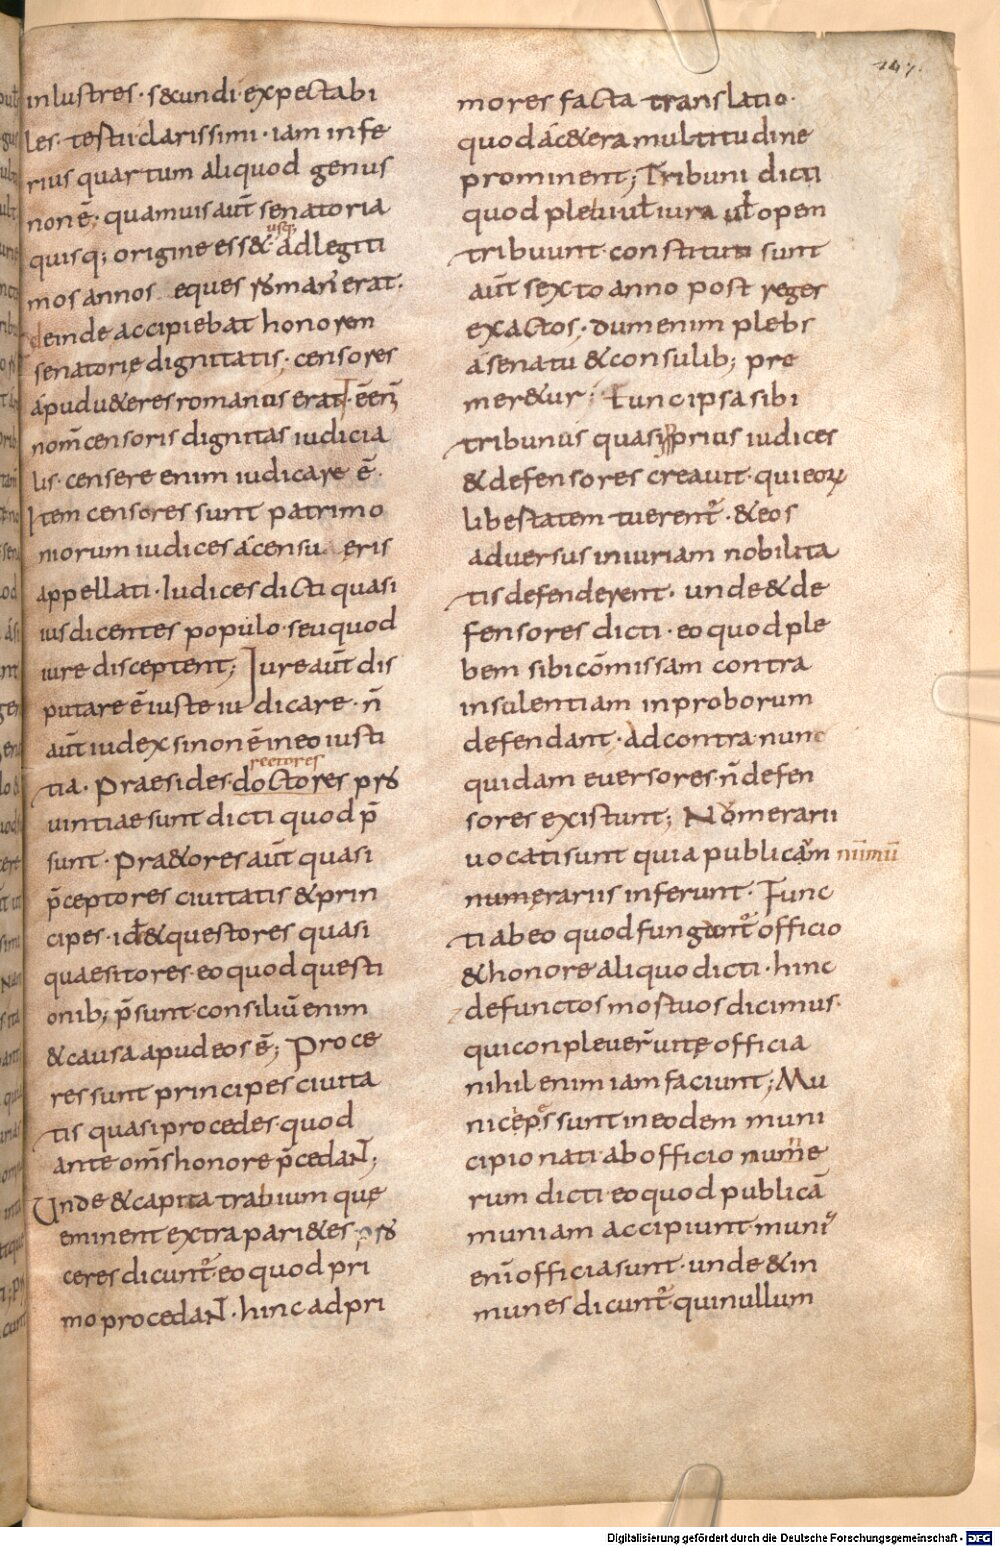 147.
inlustres · s&cundi · expectabi
les · testii clarissimi · iam infe
rius quartum aliquod genus
non ē; quamuis aūt senatoria
quisq; origine ess& usq; ad legiti
mos annos eques roman' erat.
deinde accipiebat honorem
senatorie dignitatis; censores
apud u&eres romanus erat. ē eni
nom̄ censoris dignitas iudicia
lis · censere enim iudicare ē.
Item censores sunt patrimo
niorum iudices a censu eris
appellati · Iudices dicti quasi
ius dicentes populo · seu quod
iure disceptent; Iure aūt dis
putare ē iuste iudicare · n̄
aūt iudex si non ē in eo iusti
tia. Praesides doctores pro
rectores
uintiae sunt dicti quod p̄
sunt. Pra&ores aūt quasi
p̄ceptores ciuitatis & prin
cipes · id & questores quasi
quaesitores · eo quod questi
onib; p̄sunt · consiliū enim
& causa apud eos ē; Proce
res sunt principes ciuita
tis quasi procedes · quod
ante om̄s honore p̄cedant;
Unde & capita trabium quę
eminent extra pari&es pro
ceres dicunt' eo quod pri
mo procedant · hinc ad pri
mores facta translatio ·
quod a c&era multitudine
prominent; Tribuni dicti
quod plebi uł iura uł opem
tribuunt · constituti sunt
aūt sexto anno post reges
exactos · dum enim plebs
a senatu & consulib; pre
mer&ur; tunc ipsa sibi
tribunus quasi prius iudices
& defensores creauit · qui eorum
libestatem tuerent' · & eos
aduersus iniuriam nobilita
tis defenderent · unde & de
fensores dicti · eo quod ple
bem sibi cōmissam contra
insulentiam inproborum
defendant · ad contra nunc
quidam euersores n̄ defen
sores existunt; Nomerarii
uocati sunt quia publicam nūmū
numerariis inferunt · Func
ti ab eo quod fungunt' officio
& honore aliquo dicti · hinc
defunctos mostuos dicimus ·
qui conpleuerunt uitę officia
nihil enim iam faciunt; Mu
niceps sunt in eodem muni
cipio nati · ab officio nume
rum dicti · eo quod publicā
muniam accipiunt · muni
enī officia sunt · unde & in
munes dicunt' qui nullum
Digitalisierung gefördert durch die Deutsche Forschungsgemeinschaft - DFG